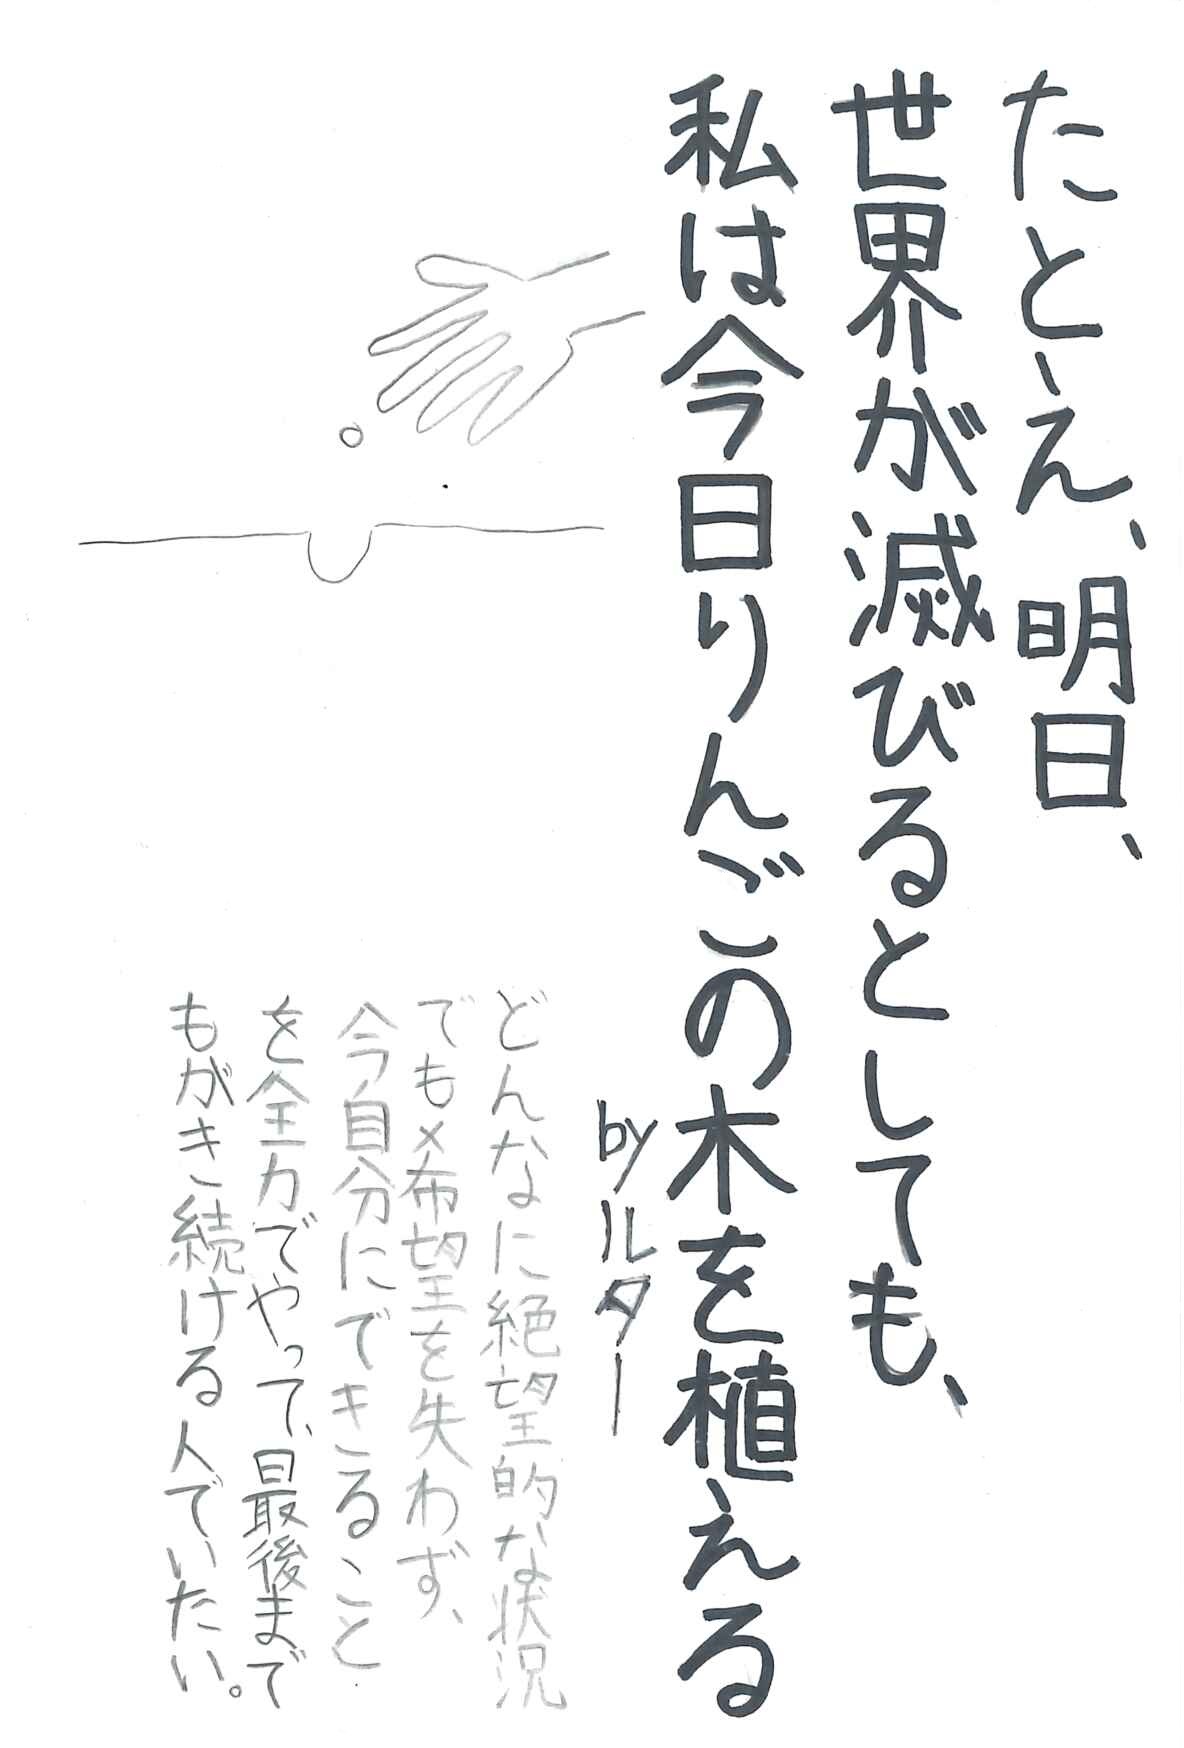 たとえ、明日、
世界が滅びるとしても、
私は今日りんごの木を植える
byルター
どんなに絶望的な状況
でも希望を失わず、
今自分にできること
を全力でやって、最後まで
もがき続ける人でいたい。